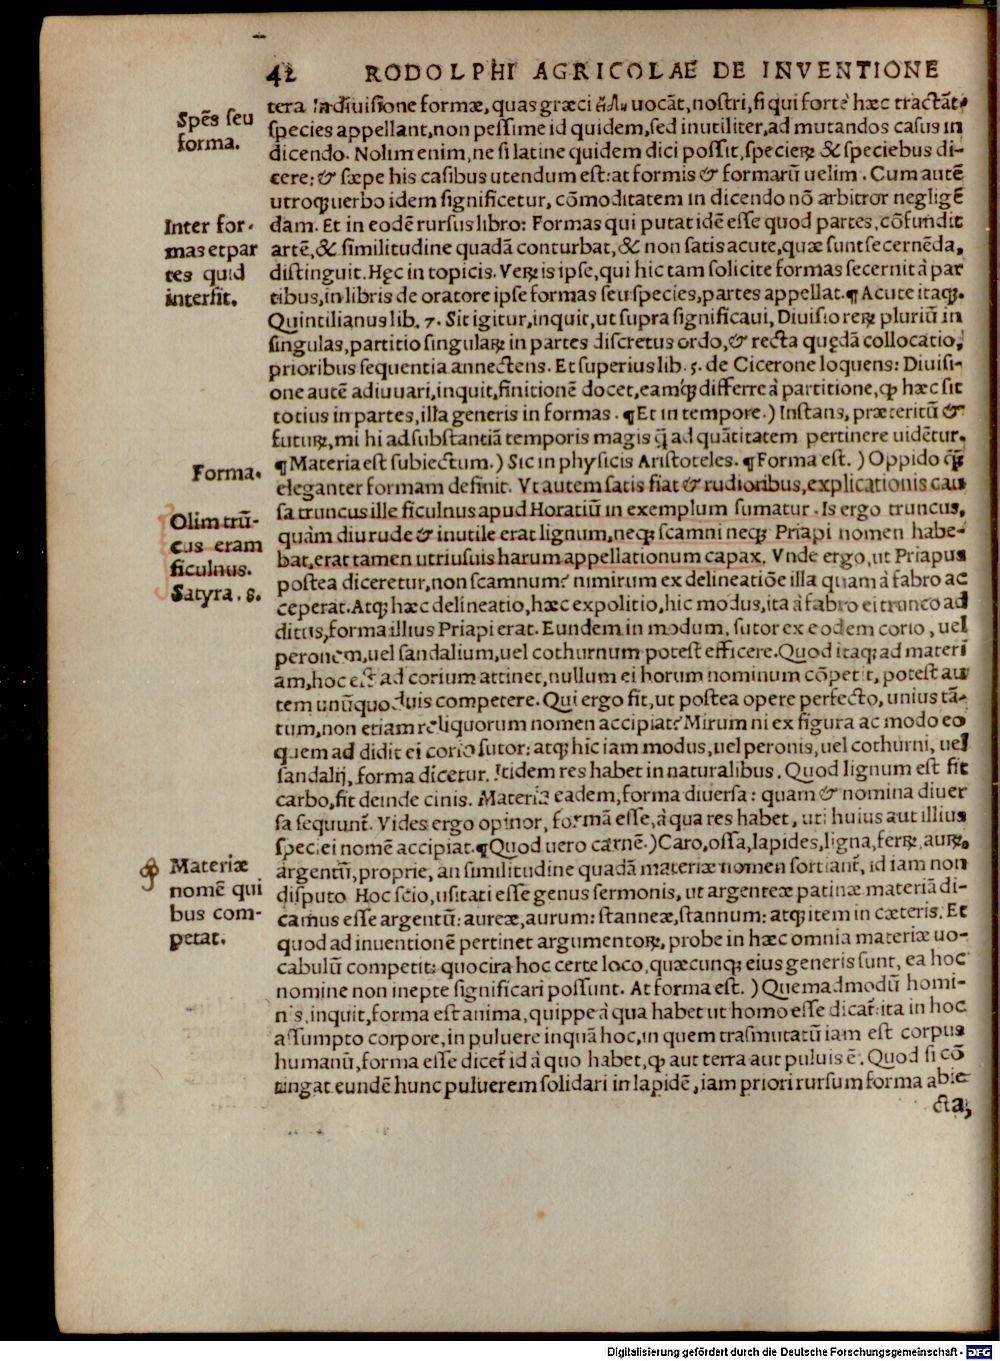 42 RODOLPHI AGRICOLAE DE INVENTIONE
Spēs seu
forma.
tera In diuisione formæ, quas græci uocāt, nostri, si qui forte hæc tractāt,
species appellant, non pessime id quidem, sed inutiliter, ad mutandos casus in
dicendo. Nolim enim, ne si latine quidem dici possit, specieꝝ & speciebus di-
cere: & sæpe his casibus utendum est: at formis & formarū uelim. Cum autē
utroqꝫ uerbo idem significetur, cōmoditatem in dicendo nō arbitror negligē
Inter for-
mas et par
tes quid
intersit.
dam. Et in eodē rursus libro: Formas qui putat idē esse quod partes, cōfundit
artē, & similitudine quadā conturbat, & non satis acute, quæ sunt secernēda,
distinguit. Hęc in topicis. Veꝝ is ipse, qui hic tam solicite formas secernit à par
tibus, in libris de oratore ipse formas seu species, partes appellat. ¶ Acute itaqꝫ.
Quintilianus lib. 7. Sit igitur, inquit, ut supra significaui, Diuisio reꝝ pluriū in
singulas, partitio singulaꝝ in partes discretus ordo, & recta quędā collocatio,
prioribus sequentia annectens. Et superius lib. 5. de Cicerone loquens: Diuisi-
one autē adiuuari, inquit, finitionē docet, eamqꝫ differre à partitione, ꝙ hæc sit
totius in partes, illa generis in formas. ¶ Et in tempore.) Instans, præteritū &
futuꝝ, mihi ad substantiā temporis magis q̄ ad quātitatem pertinere uidētur.
Forma.
¶ Materia est subiectum.) Sic in physicis Aristoteles. ¶ Forma est.) Oppido
eleganter formam definit. Vt autem satis fiat & rudioribus, explicationis cau
Olim trū-
cus eram
ficulnus.
Satyra. 8.
sa truncus ille ficulnus apud Horatiū in exemplum sumatur. Is ergo truncus,
quàm diu rude & inutile erat lignum, neqꝫ scamni neqꝫ Priapi nomen habe-
bat, erat tamen utriusuis harum appellationum capax. Vnde ergo, ut Priapus
postea diceretur, non scamnum? nimirum ex delineatiōe illa quam à fabro ac
ceperat. Atqꝫ hæc delineatio, hæc expolitio, hic modus, ita à fabro ei trunco ad
ditus, forma illius Priapi erat. Eundem in modum, sutor ex eodem corio, uel
peronem, uel sandalium, uel cothurnum potest efficere. Quod itaqꝫ ad materi
am, hoc est ad corium attinet, nullum ei horum nominum cōpetit, potest au
tem unūquoduis competere. Qui ergo fit, ut postea opere perfecto, unius tā-
tum, non etiam reliquorum nomen accipiat? Mirum ni ex figura ac modo eo
quem ad didit ei corio sutor: atqꝫ hic iam modus, uel peronis, uel cothurni, uel
sandalij, forma dicetur. Itidem res habet in naturalibus. Quod lignum est fit
carbo, fit deinde cinis. Materia eadem, forma diuersa: quam & nomina diuer
sa sequunt̄. Vides ergo opinor, formā esse, à qua res habet, uti huius aut illius
speciei nomē accipiat. ¶ Quod uero carnē.) Caro, ossa, lapides, ligna, ferꝝ, auꝝ,
Materiæ
nomē qui
bus com-
petat.
argentū, proprie, an similitudine quadā materiæ nomen sortiant̄, id iam non
disputo Hoc scio, usitati esse genus sermonis, ut argenteæ patinæ materiā di-
camus esse argentū: aureæ, aurum: stanneæ, stannum: atqꝫ item in cæteris. Et
quod ad inuentionē pertinet argumentoꝝ, probe in hæc omnia materiæ uo-
cabulū competit: quocirca hoc certe loco, quæcunqꝫ eius generis sunt, ea hoc
nomine non inepte significari possunt. At forma est.) Quemadmodū homi-
nis, inquit, forma est anima, quippe à qua habet ut homo esse dicat̄: ita in hoc
assumpto corpore, in puluere inquā hoc, in quem trāsmutatū iam est corpus
humanū, forma esse dicet̄ id à quo habet, ꝙ aut terra aut puluis ē. Quod si cō
tingat eundē hunc puluerem solidari in lapidē, iam priori rursum forma abie
cta,
Digitalisierung gefördert durch die Deutsche Forschungsgemeinschaft - DFG